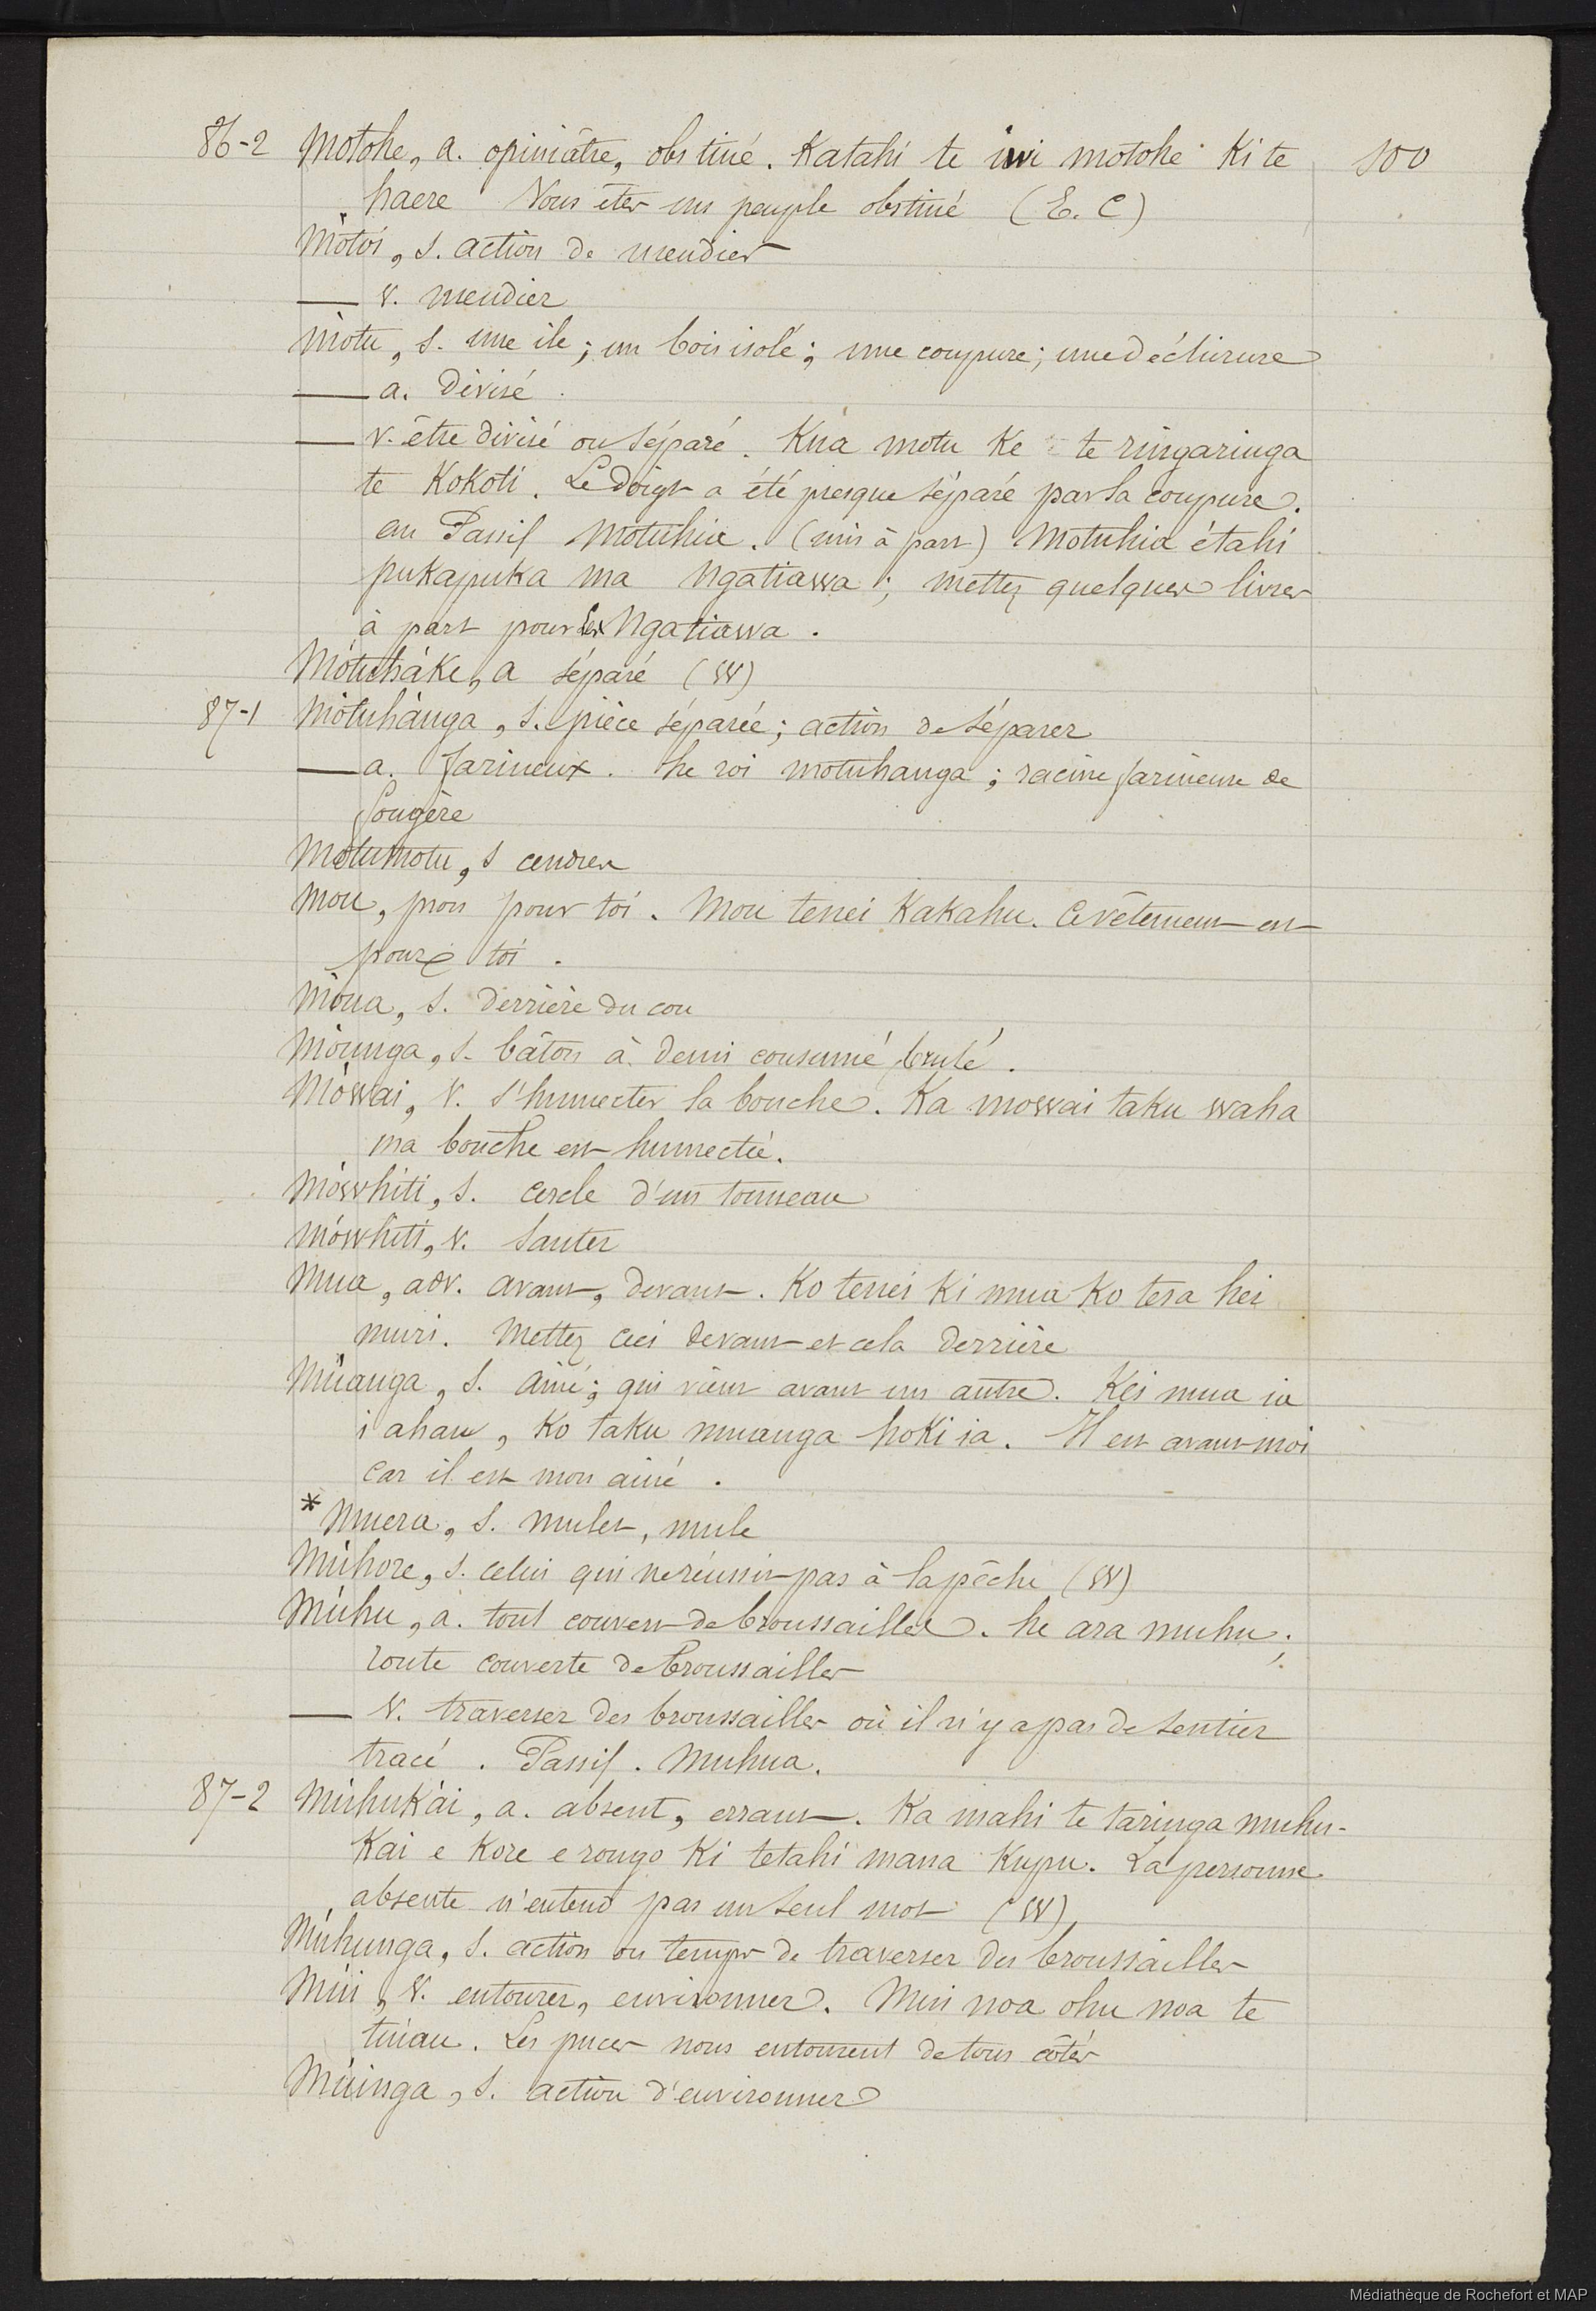 86-2 Motohe, a. opiniâtre, obstiné. Katahi te iwi motohe ki te 100
haere Vous êtes un peuple obstiné (E. C)
Mótoi, s. action de mendier
— v. mendier
Mótu, s. une ile; un bois isolé; une coupure; une déchirure
— a. divisé.
— v. être divisé ou séparé. Kua motu ke te ringaringa
te Kokoti. Le doigt a été presque séparé par la coupure.
au Passif Motuhia. (mis à part) Motuhia étahi
pukapuka ma Ngatiawa; mettez quelques livres
à part pour les Ngatiawa.
Mótuháke, a séparé (W)
87-1 Mótuhánga, s. pièce séparée; action de séparer
— a. farineux. he roi motuhanga; racine farineuse de
fougère
Mótumotu, s cendres
Mou, pron pour toi. Mou tenei Kakahu. Ce vêtement est
pour toi.
Móua, s. derrière du cou
Móunga, s. bâton à demi consumé brulé.
Mówai, v. s'humecter la bouche. Ka mowai taku waha
ma bouche est humectée.
Mówhiti, s. cercle d'un tonneau
Mówhiti, v. sauter
Mua, adv. avant, devant. Ko tenei ki mua ko tera hei
muri. Mettez ceci devant et cela derrière
Múanga, s. ainé; qui vient avant un autre. Kei mua ia
i ahau, Ko taku muanga hoki ia. Il est avant moi
car il est mon ainé.
* Muera, s. mulet, mule
Múhore, s. celui qui ne réussit pas à la pêche (W)
Múhu, a. tout couvert de broussailles. he ara muhu;
route couverte de broussailles
— v. traverser des broussailles où il n'y a pas de sentier
tracé. Passif. Muhua.
87-2 Múhukái, a. absent, errant. Ka mahi te taringa muhu-
Kai e kore e rongo ki tetahi mana Kupu. La personne
absente n'entend pas un seul mot (W)
Múhunga, s. action ou temps de traverser des broussailles
Múi, v. entourer, environner. Mui noa ohu noa te
tuiau. Les puces nous entourent de tous côtés
Múinga, s. action d'environner
Médiathèque de Rochefort et MAP